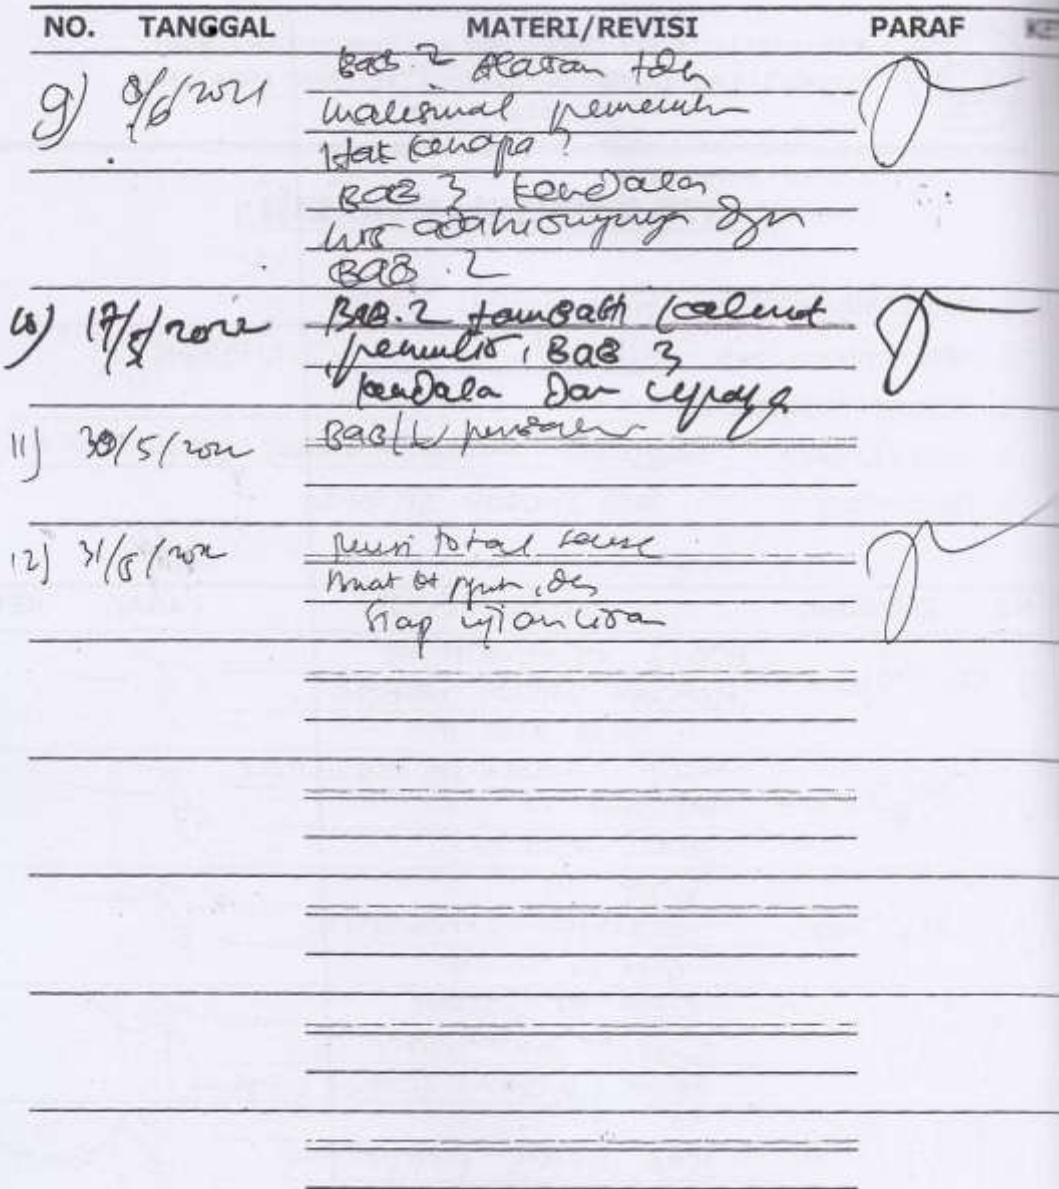 NO. TANGGAL MATERI/REVISI PARAF KE
9) 8/6/2021 BAB.2 Alasan tdk
maksimal pemenuh
Hak kenapa?
BAB 3 kendala
hrs ada hubungnya dgn
BAB.2
10) 17/5/2022 BAB.2 tambah kalimat
penulis, BAB 3
kendala dan upaya
11) 30/5/2022 BAB
12) 31/5/2022 revisi total
buat
siap ujian lisan